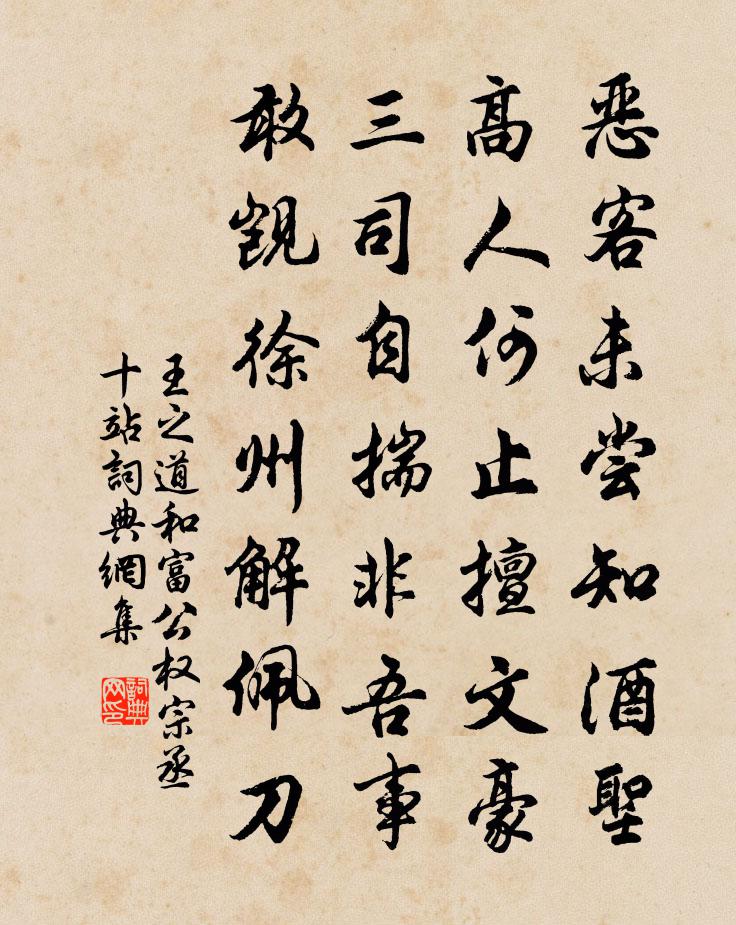 恶客未尝知酒聖
高人何止擅文豪
三司自揣非吾事
敢觊徐州解佩刀
王之道和富公权宗丞
十站詞典網集
詞典网印